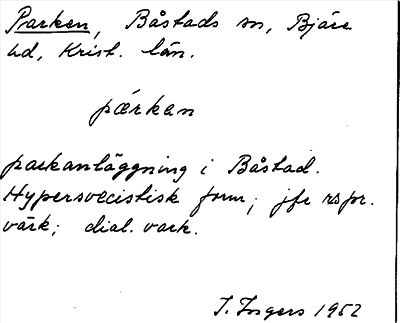 Parken, Båstads sn, Bjäre
hd, Krist. län.
pærkan
parkanläggning i Båstad.
Hypersvecistisk form; jfr rspr.
värk; dial. vark.
I. Ingers 1952